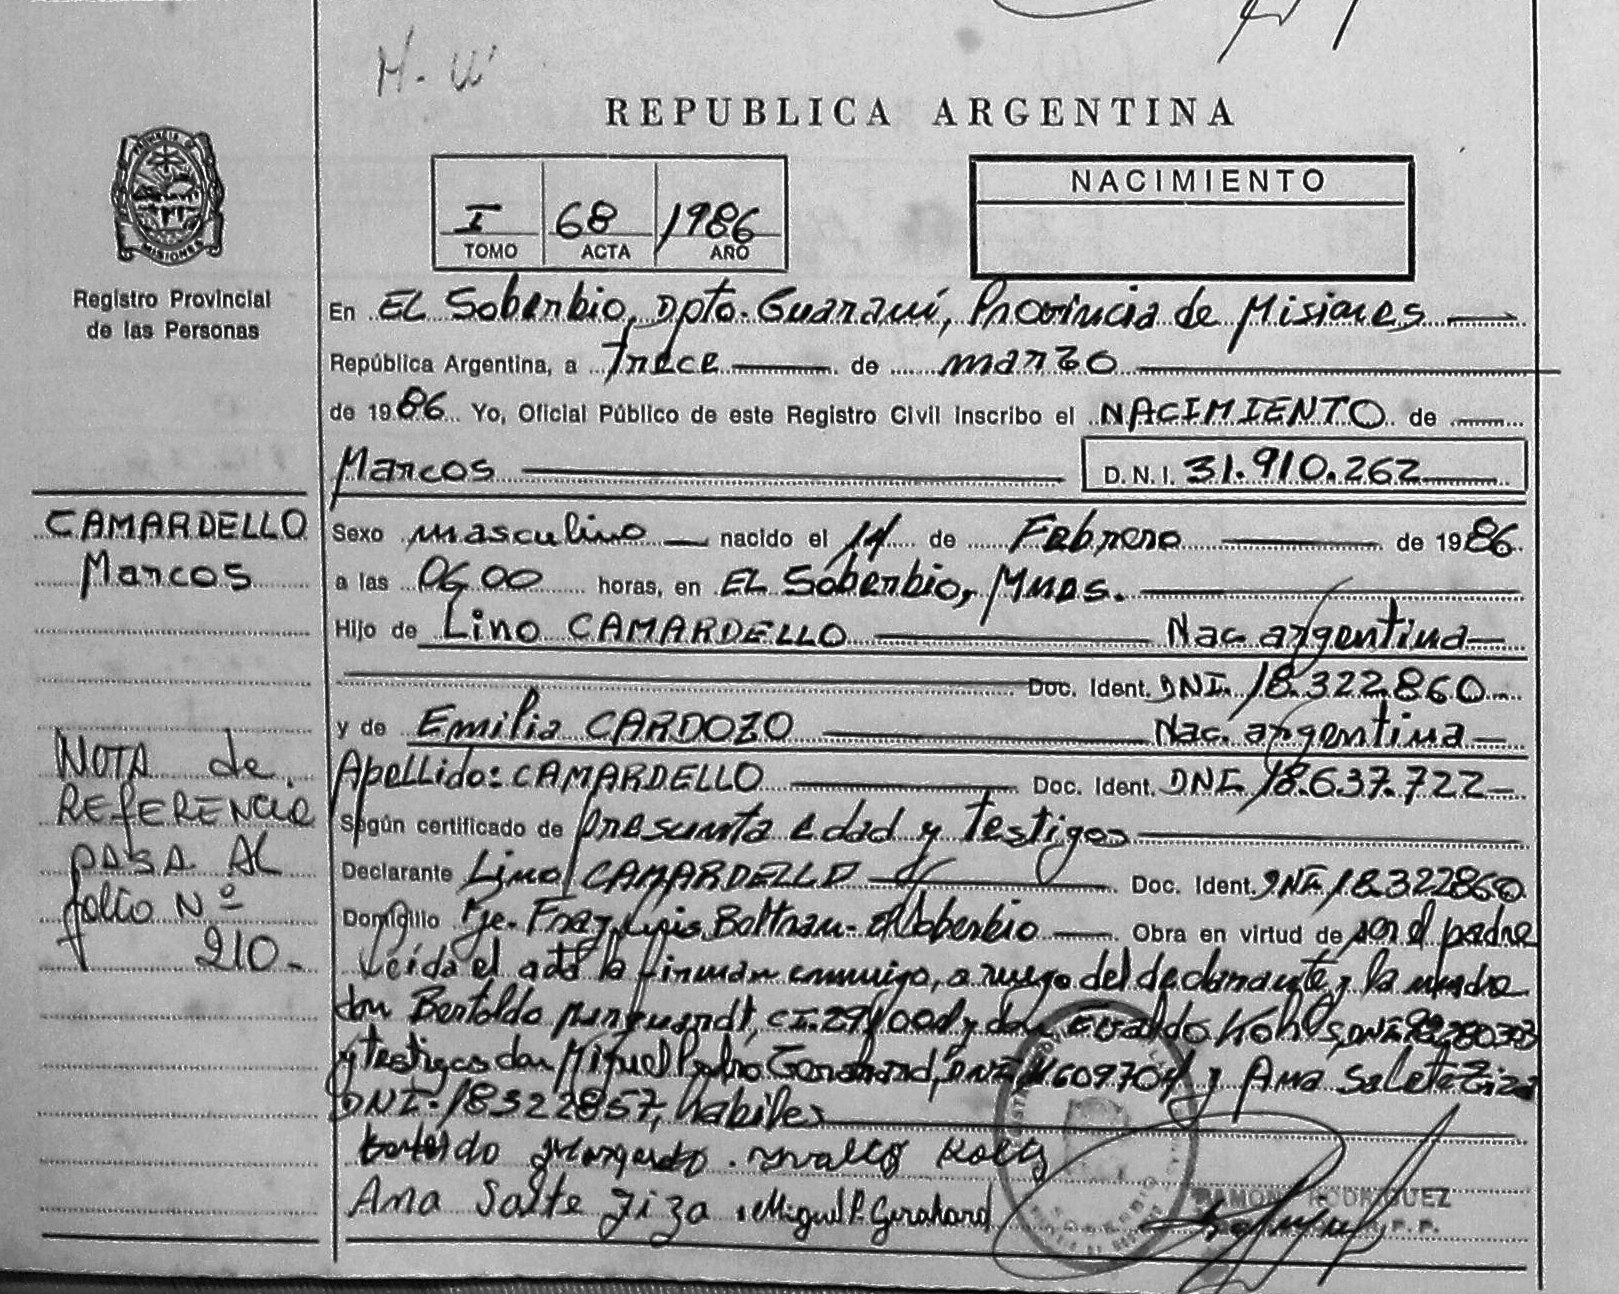 H. W
REPUBLICA ARGENTINA
PROVINCIA DE
MISIONES
Registro Provincial
de las Personas
I 68 1986
TOMO ACTA AÑO
NACIMIENTO
En EL Soberbio, Dpto. Guaraní, Provincia de Misiones
República Argentina, a Trece de marzo
de 1986 Yo, Oficial Público de este Registro Civil Inscribo el NACIMIENTO de
Marcos D.N.I. 31.910.262
CAMARDELLO
Marcos
Sexo masculino nacido el 14 de Febrero de 1986
a las 06,00 horas, en EL Soberbio, Mnes.
Hijo de Lino CAMARDELLO Nac. argentina
Doc. Ident. DNI. 18.322.860
y de Emilia CARDOZO Nac. argentina
Apellido: CAMARDELLO Doc. Ident. DNI. 18.637.722
Según certificado de presunta edad y testigos
Declarante Lino CAMARDELLO Doc. Ident. DNI. 18.322860
Domicilio Pje. Fray Luis Beltran - El Soberbio Obra en virtud de ser el padre
Leída el acta la firman conmigo, a ruego del declarante y la madre
don Bertoldo CI. y don Evaldo DNI.
y testigos don Miguel Pedro DNI y Ana Salete Ziza
DNI. 18322857, habiles
NOTA de
REFERENCIA
PASA AL
folio Nº
210.-
Ana Salte Ziza Miguel P. Gerahard
RAMON RODRIGUEZ